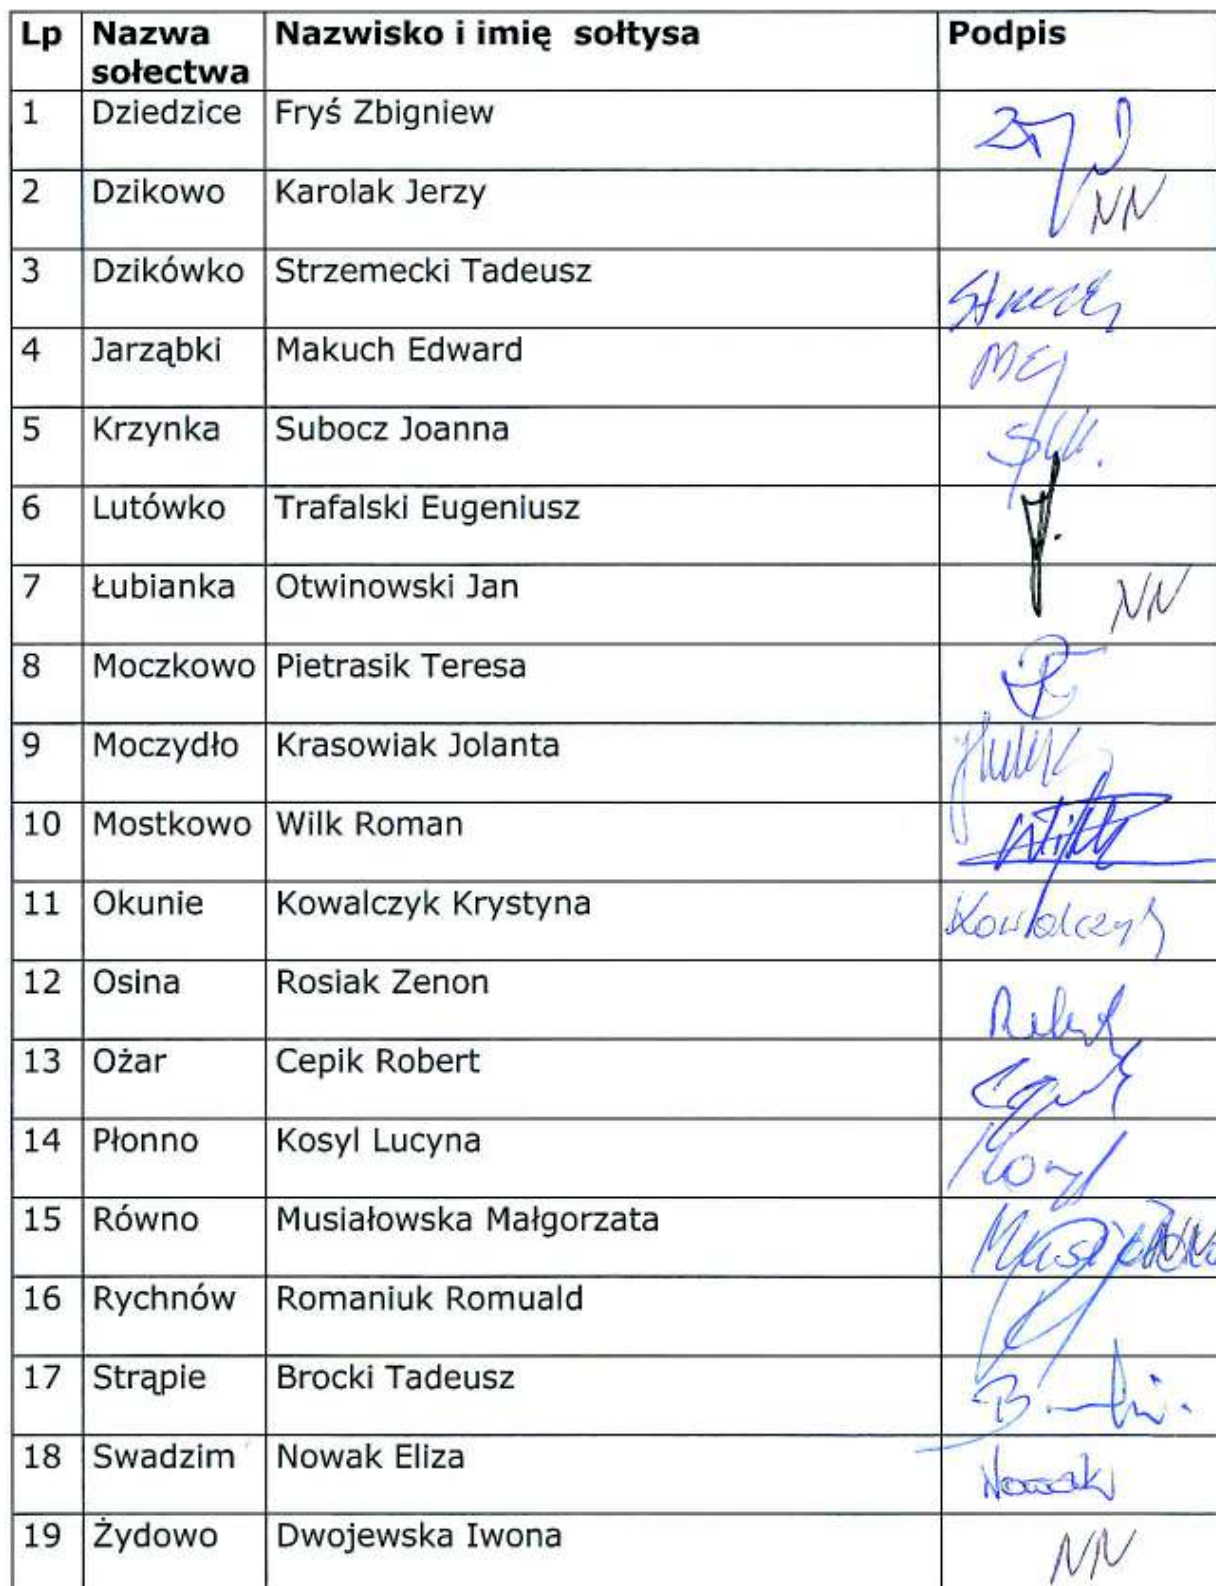 Lp Nazwa sołectwa Nazwisko i imię sołtysa Podpis
1 Dziedzice Fryś Zbigniew
2 Dzikowo Karolak Jerzy NN
3 Dzikówko Strzemecki Tadeusz
4 Jarząbki Makuch Edward
5 Krzynka Subocz Joanna
6 Lutówko Trafalski Eugeniusz
7 Łubianka Otwinowski Jan NN
8 Moczkowo Pietrasik Teresa
9 Moczydło Krasowiak Jolanta
10 Mostkowo Wilk Roman Wilk
11 Okunie Kowalczyk Krystyna Kowalczyk
12 Osina Rosiak Zenon
13 Ożar Cepik Robert
14 Płonno Kosyl Lucyna
15 Równo Musiałowska Małgorzata
16 Rychnów Romaniuk Romuald
17 Strąpie Brocki Tadeusz
18 Swadzim Nowak Eliza Nowak
19 Żydowo Dwojewska Iwona NN